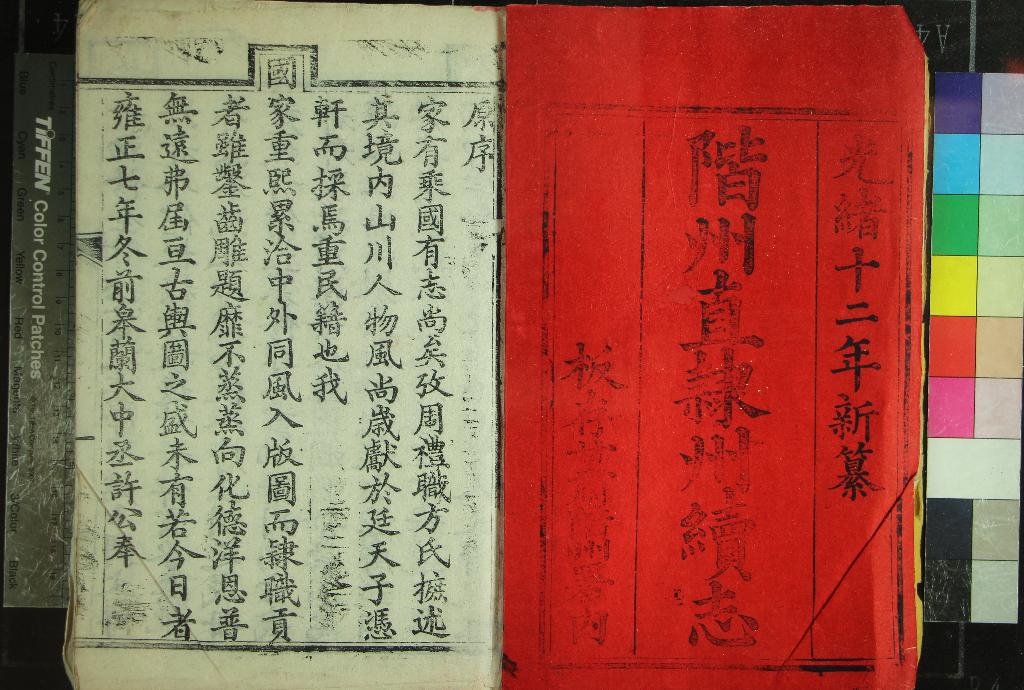 光緒十二年新纂
階州直隸州續志
板存
內
原序
家有乘國有志尚矣攷周禮職方氏摭述
其境內山川人物風尚歲獻於廷天子憑
軒而採焉重民籍也我
國家重熙累洽中外同風入版圖而隸職貢
者雖鑿齒雕題靡不蒸蒸向化德洋恩普
無遠弗屆亘古輿圖之盛未有若今日者
雍正七年冬前皋蘭大中丞許公奉
TIFFEN Color Control Patches
Blue
Cyan
Green
Yellow
Red
Magenta
White
3/Color
Black
Centimetres
A4